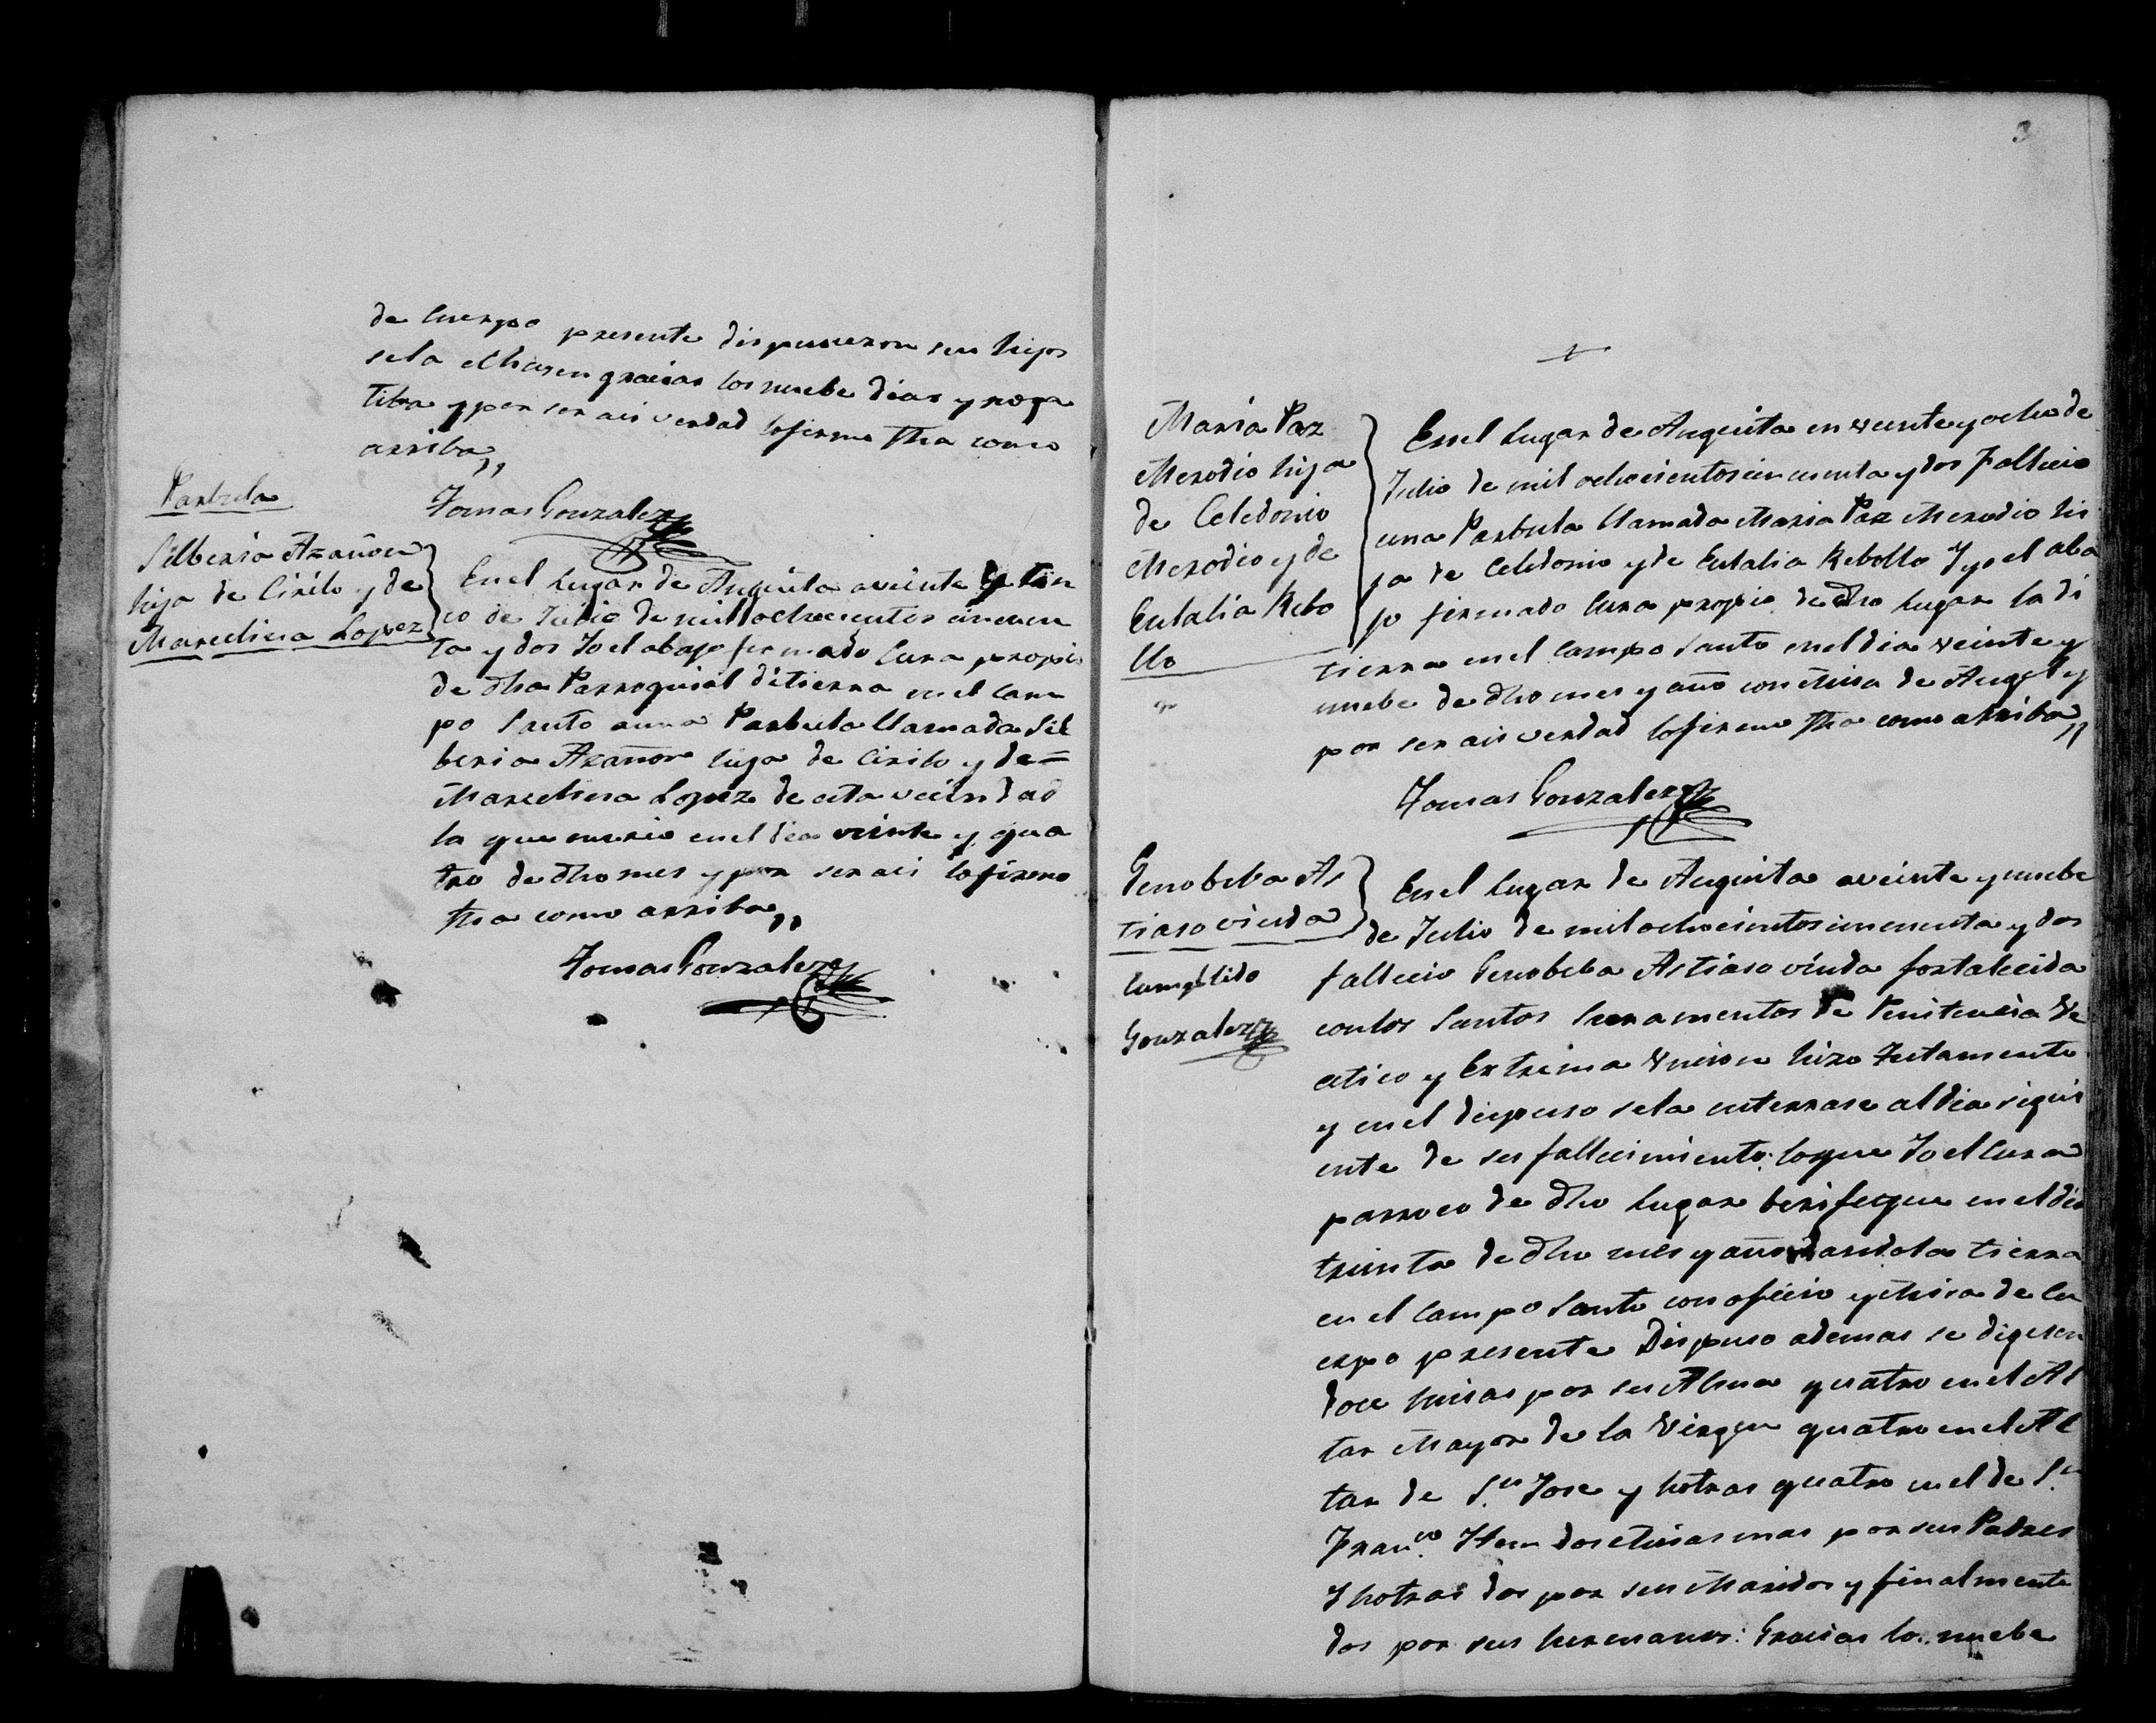 de Cuerpo presente dispusieron sus hijos
sela echasen gracias los nuebe dias y roga
tiba y por ser asi verdad lo firmo fha como
arriba,,
Tomas Gonzalez
Parbula
Silberia Azañon
hija de Cirilo y de
Marcelina Lopez
En el Lugar de Anguita a veinte y cin
co de Julio de mil ochocientos cincuen
ta y dos Yo el abajo firmado Cura propio
de dha Parroquial di tierra en el Cam
po Santo a una Parbula llamada Sil
beria Azañon hija de Cirilo y de=
Marcelina Lopez de esta vecindad
la que murio en el dia veinte y qua
tro de dho mes y por ser asi lo firmo
fha como arriba,,
Tomas Gonzalez
3
Maria Paz
Merodio hija
de Celedonio
Merodio y de
Eulalia Rebo
llo
En el Lugar de Anguita en veinte y ocho de
Julio de mil ochocientos cincuenta y dos Fallecio
una Parbula llamada Maria Paz Merodio hi
ja de Celedonio y de Eulalia Rebollo Y yo el aba
jo firmado Cura propio de dho Lugar la di
tierra en el Campo Santo en el dia veinte y
nuebe de dho mes y año con Misa de Angel y
por ser asi verdad lo firmo fha como arriba,,
Tomas Gonzalez
Genobeba As
tiaso viuda
Cumplido
Gonzalez
En el Lugar de Anguita a veinte y nuebe
de Julio de mil ochocientos cincuenta y dos
fallecio Genobeba Astiaso viuda fortalecida
con los Santos Sacramentos de Penitencia Vi
atico y Extrema Uncion hizo Testamento
y en el dispuso sela enterrase al dia sigui
ente de su fallecimiento: lo que Yo el Cura
parroco de dho Lugar berifeque en el dia
treinta de dho mes y año dandola tierra
en el Campo Santo con oficio y Misa de Cu
erpo presente Dispuso ademas se digesen
doce Misas por su Alma quatro en el Al
tar Mayor de la Virgen quatro en el Al
tar de Sn Jose y hotras quatro en el de Sn
Franco. Item dos Misas mas por sus Padres
Y hotras dos por sus Maridos y finalmente
dos por sus hermanos: Gracias los nuebe